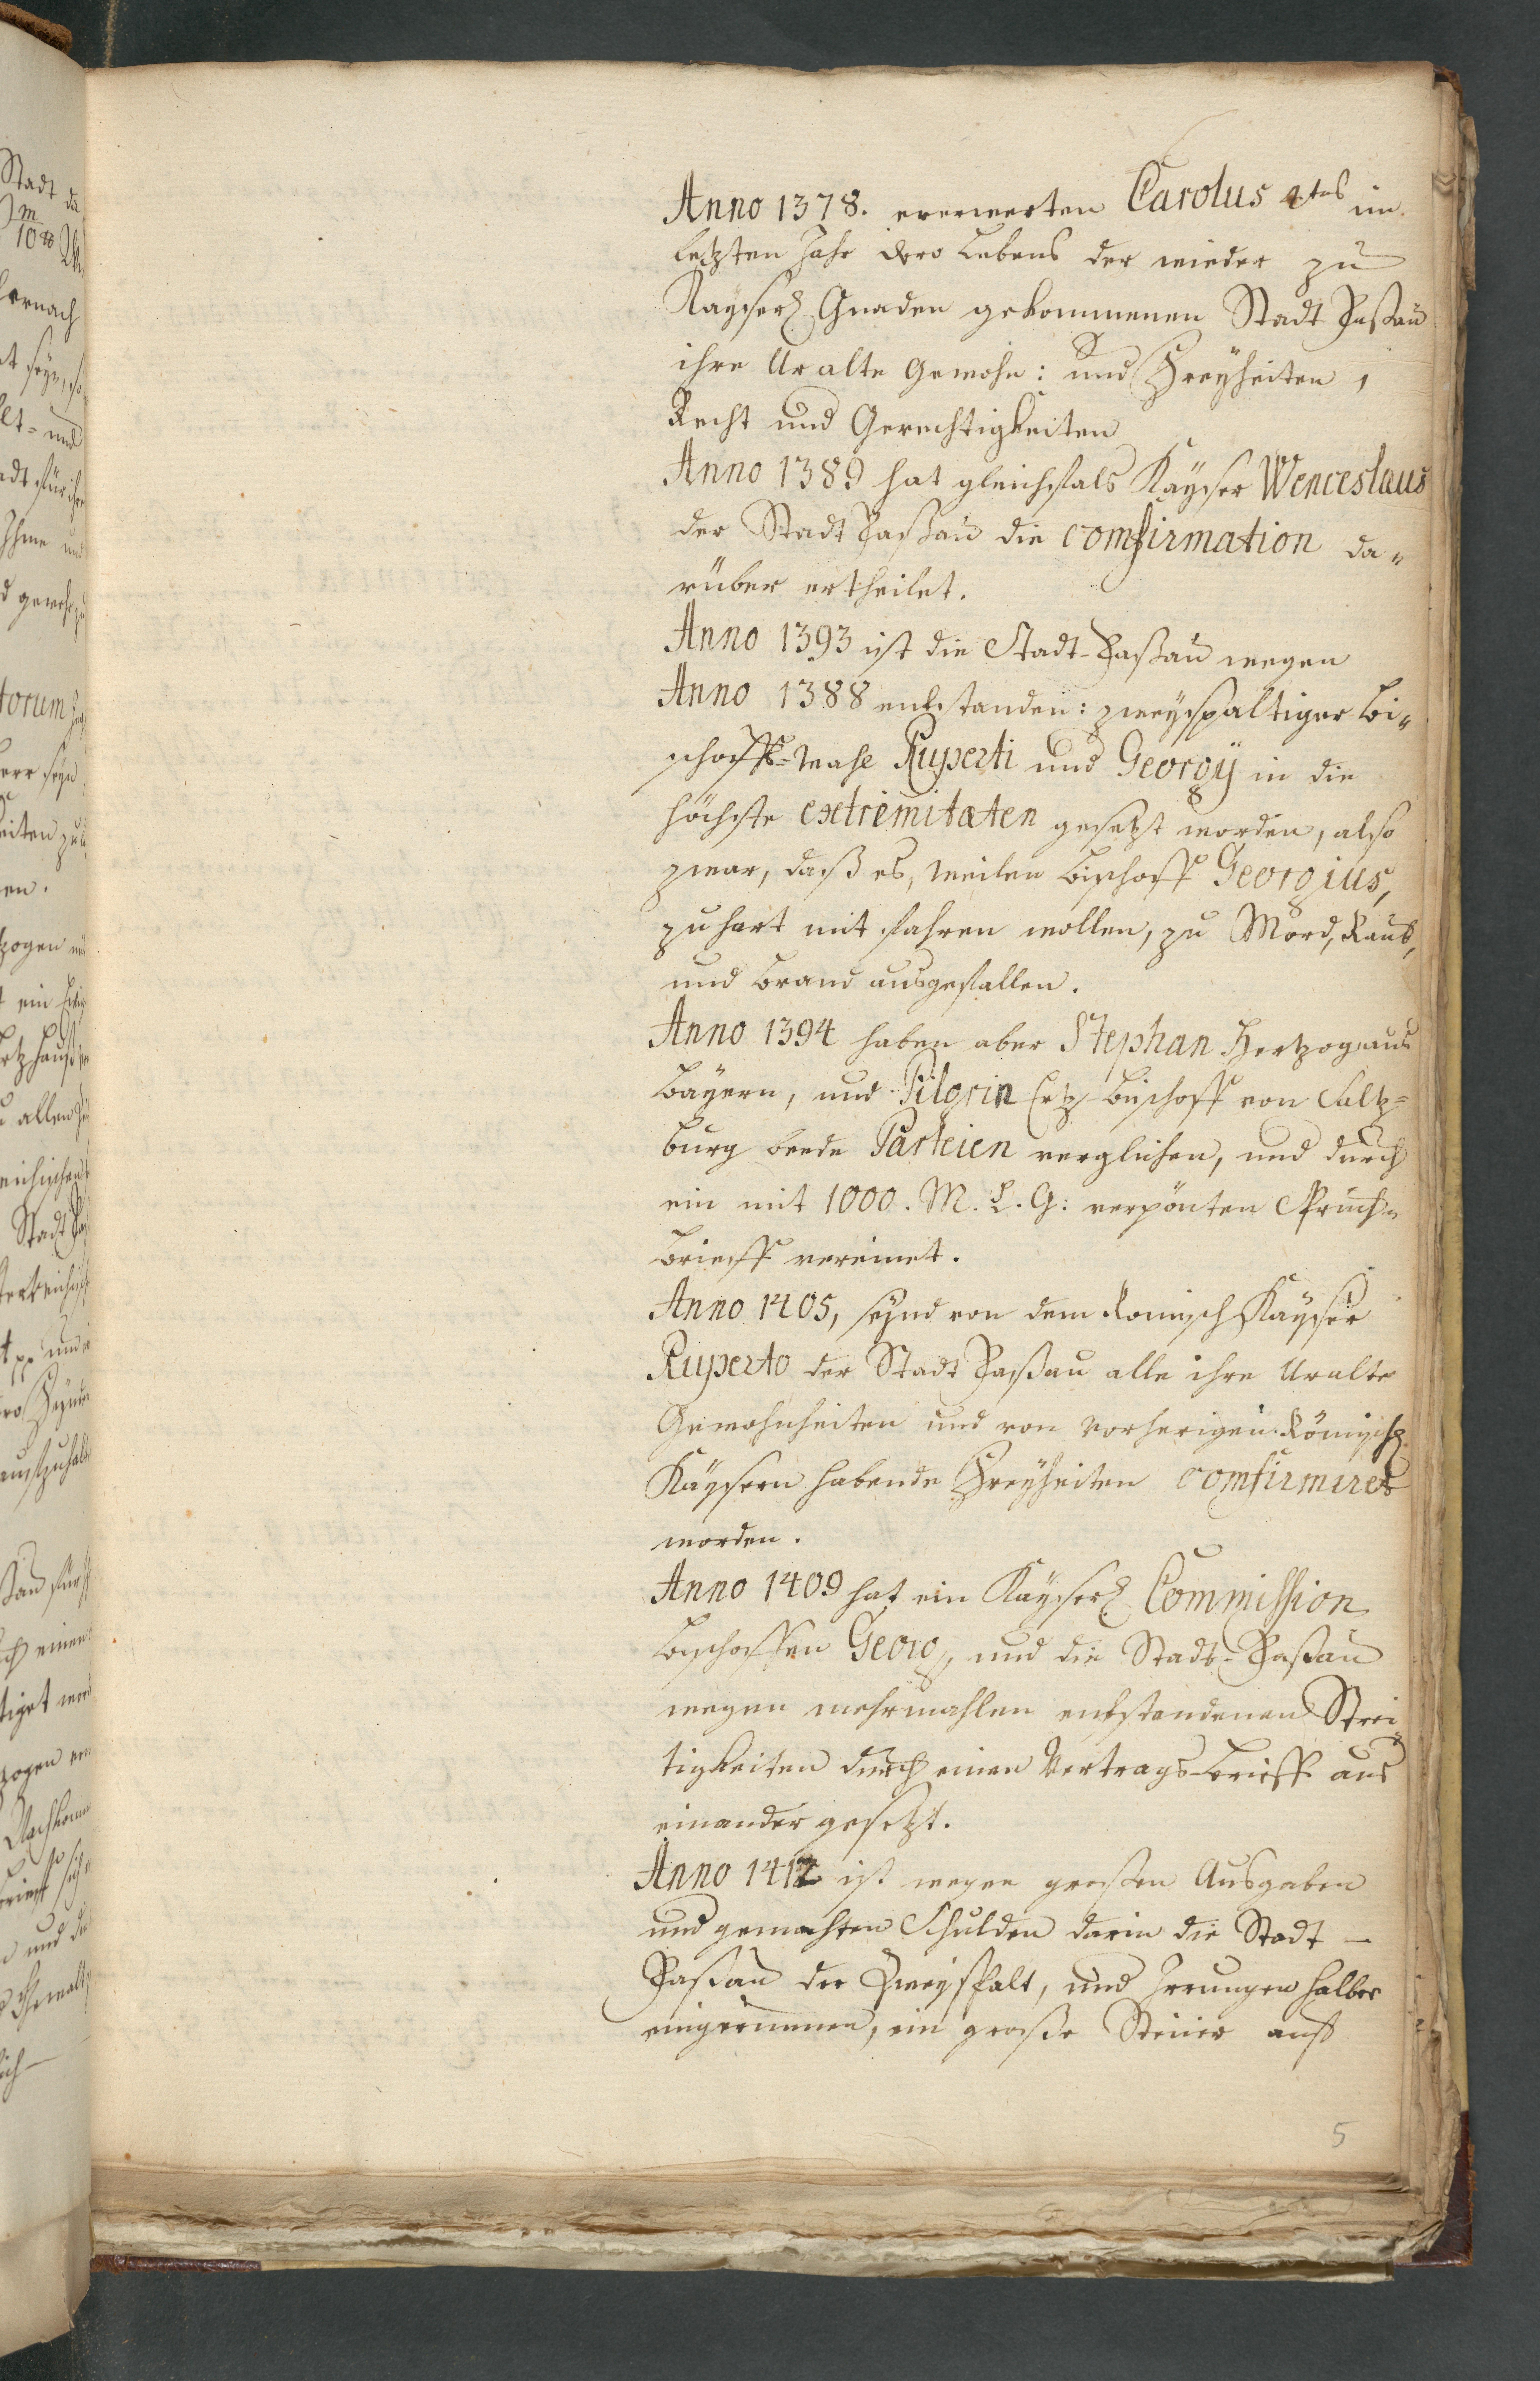 Anno 1378. ernewerten Carolus 4tus im
letzten Jahr dero Lebens der wieder zu
Kayserl. Gnaden gekommenen Stadt Paßau
ihre Uralte Gewohn: und Freyheiten,
Recht und Gerechtigkeiten
Anno 1389 hat gleichfals Kayser Wenceslaus
der Stadt Paßau die comfirmation da„
rüber ertheilet.
Anno 1393 ist die Stadt-Paßau wegen
Anno 1388 entstanden: zweyspaltiger Bi„
schoffs-Wahl Ruperti und Georgÿ in die
höchste extremitaten gesetzt worden, also
zwar, daß es, weilen Bischoff Georgius,
zu hart mit fahren wollen, zu Mord, Raub,
und Brand ausgefallen.
Anno 1394 haben aber Stephan Hertzog aus
Bayern, und Pilgrin Ertz-Bischoff von Saltz=
burg beede Parteien verglichen, und durch
ein mit 1000. M. L. G: verpönten Spruch„
Brieff vereinet.
Anno 1405, seynd von dem Romisch Kayser
Ruperto der Stadt Paßau alle ihre Uralte
Gewohnheiten und von vorherigen Römisch.
Kaysern habende Freyheiten comfirmiret
worden.
Anno 1409 hat ein Kayserl. Commission
Bischoffen Georg, und die Stadt-Paßau
wegen mehrmahlen entstandenen Strei
tigkeiten durch einen Vertrags-Brieff aus
einander gesetzt.
Anno 1412 ist wegen großen Ausgaben
und gemachten Schulden darin die Stadt —
Paßau der Zweyspalt, und Irrungen halber
eingerunnen, ein große Steuer auff
5
Stadt da
10
hernach
seyn, so
und
für ihre
Ihme und
torum
herr seyn
en.
zogen und
ein
u allen
Stadt
und
einen
zogen
und die
Gewalt